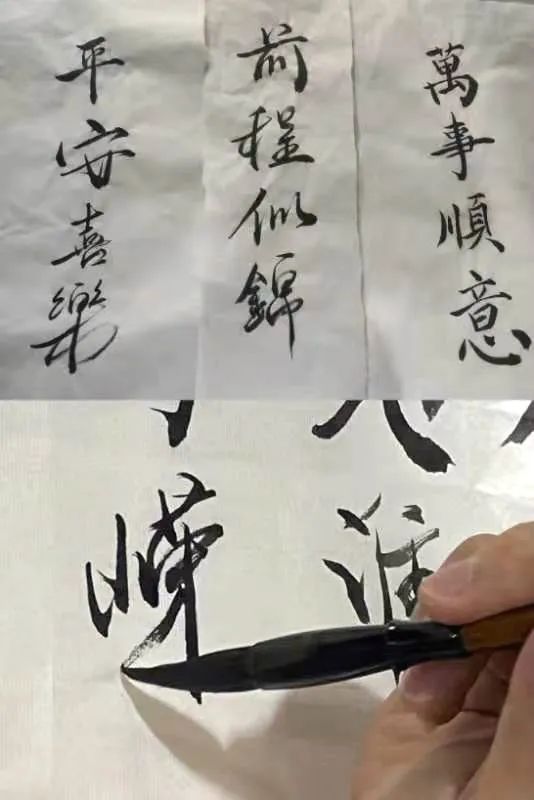 萬事順意
前程似錦
平安喜樂